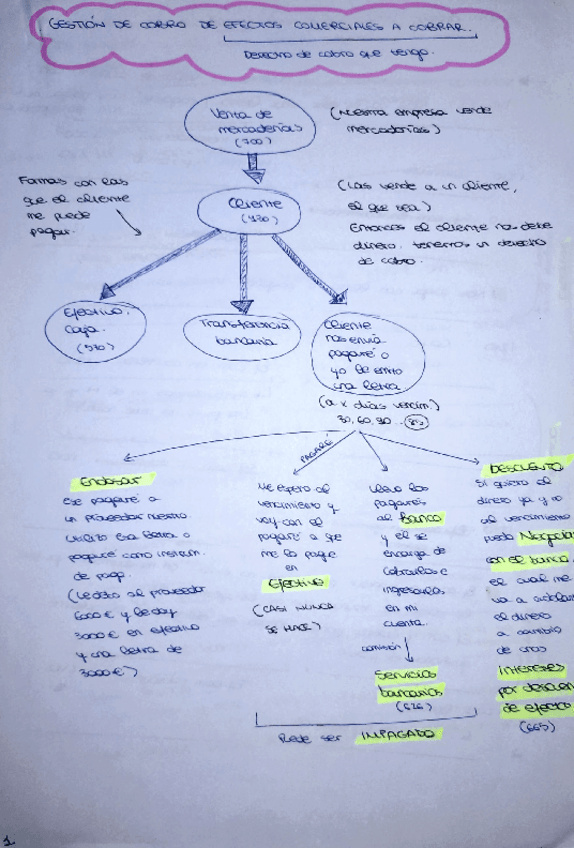 GESTIÓN DE COBRO DE EFECTOS COMERCIALES A COBRAR.
Derecho de cobro que tengo.
Venta de
mercaderías
(700)
(Nuestra empresa vende
mercaderías)
Formas con las
que el cliente
me puede
pagar.
Cliente
(430)
(Las vende a un cliente,
el que sea)
Entonces el cliente nos debe
dinero. tenemos un derecho
de cobro.
Efectivo.
Caja.
(570)
Transferencia
bancaria
Cliente
nos envía
pagaré o
yo le emito
una letra
(a x días vencim.)
30, 60, 90...
PAGARÉ
Endosar
Ese pagaré a
un proveedor nuestro.
Utilizo esa letra o
pagaré como instrum.
de pago.
(Le debo al proveedor
6000 € y le doy
3000 € en efectivo
y una letra de
3000 €)
Me espero al
vencimiento y
voy con el
pagaré a que
me lo pague
en
Efectivo
(CASI NUNCA
SE HACE)
Llevo los
pagarés
al Banco
y el se
encarga de
cobrarlos e
ingresarlos
en mi
cuenta.
comisión
Servicios
bancarios
(626)
DESCUENTO
Si quiero el
dinero ya y no
al vencimiento
puedo
con el banco,
el cual me
va a
el dinero
a cambio
de unos
intereses
por
de efectos
(665)
Puede ser IMPAGADO
1